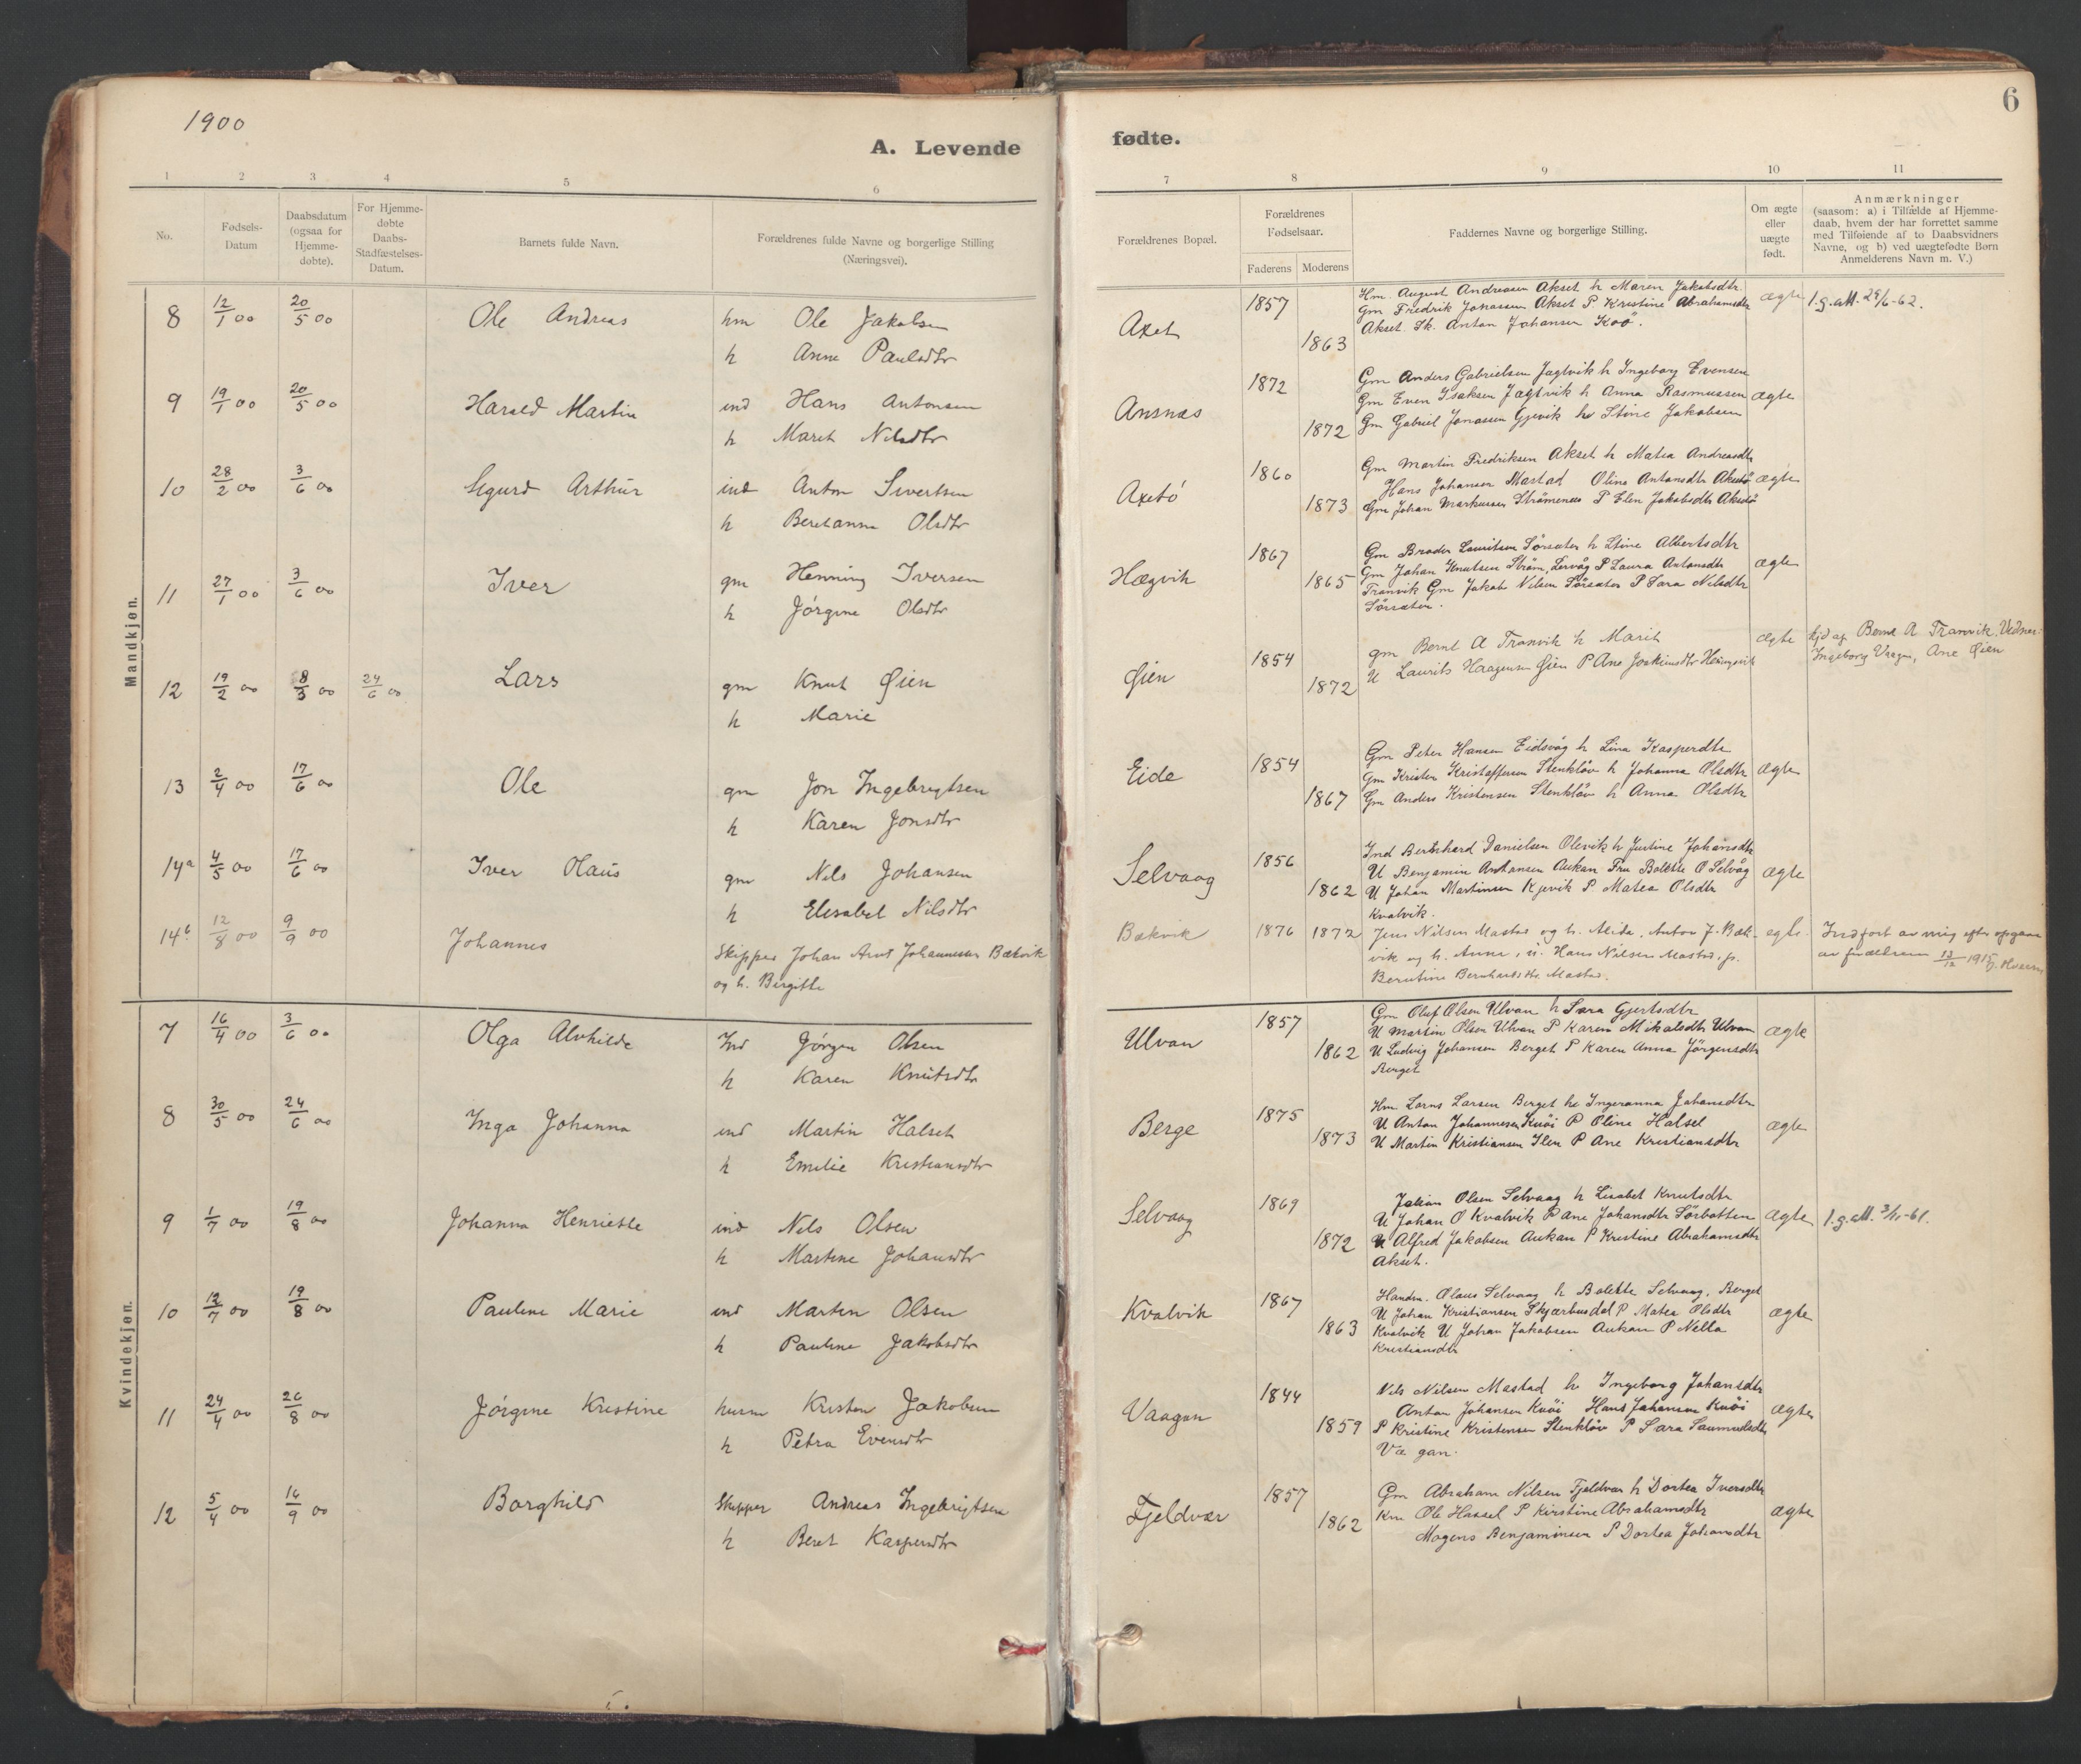 1900
6
A. Levende fødte.
1 2 3 4 5 6 7 8 9 10 11
No.
Fødsels-Datum
Daabsdatum (ogsaa for Hjemme-døbte).
For Hjemme-døbte Daabs-Stadfæstelses-Datum.
Barnets fulde Navn.
Forældrenes fulde Navne og borgerlige Stilling (Næringsvei).
Forældrenes Bopæl.
Forældrenes Fødselsaar.
Faderens Moderens
Faddernes Navne og borgerlige Stilling.
Om ægte eller uægte født.
Anmærkninger
(saasom: a) i Tilfælde af Hjemme-
daab, hvem der har forrettet samme
med Tilføiende af to Daabsvidners
Navne, og b) ved uægtefødte Børn
Anmelderens Navn m. V.)
Mandkjøn.
8 12/1 00 20/5 00 Ole Andreas hm Ole Jakobsen
h Anne Paulsdtr
Axet 1857 1863
Hm. August Andreasen Akset h Maren Jakobsdtr
Gm Fredrik Jonassen Akset P Kristine Abrahamsdtr
Akset. Sk. Anton Johansen Koö.
ægte
9 19/1 00 20/5 00 Harald Martin ind Hans Antonsen
h Marit Nilsdtr
Ansnæs 1872 1872
Gm Anders Gabrielsen Jagtvik h Ingeborg Evensen
Gm Even Isaksen Jagtvik h Anna Rasmussen
Gm Gabriel Jonassen Gjevik h Stine Jakobsen
ægte
10 28/2 00 3/6 00 Sigurd Arthur ind Anton Sivertsen
h Beretanna Olsdtr
Axetö 1860 1873
Gm Martin Fredriksen Akset h Matea Andreasdtr
Hans Johansen Mastad Olina Antonsdtr Aksetö
Gm Johan Markussen Strömenes P Elen Jakobsdtr Aksetö
ægte
11 27/1 00 3/6 00 Iver gm Henning Iversen
h Jörgine Olsdtr
Hægvik 1867 1865
Gm Broder Lauritsen Sörsæter h Stine Albertsdtr
Gm Johan Knutsen Ström, Lervåg P Laura Antonsdtr
Tranvik Gm Jakob Nilsen Sörsæter P Sara Nilsdtr
Sörsæter.
ægte
12 19/2 00 8/3 00 24/6 00 Lars gm Knut Øien
h Marie
Øien 1854 1872
gm Bernt A Tranvik h Marit
U Laurits Haagensen Øien P Ane Joakimsdtr
ægte
hjd af Bernt A Tranvik. Vidner:
Ingeborg Vaagen, Ane Øien
13 2/4 00 17/6 00 Ole gm Jon Ingebrigtsen
h Karen Jonsdtr
Eide 1854 1867
Gm Peter Hansen Eidsvåg h Lina Kasperdtr
Gm Kristen Kristoffersen Stenklöv h Johanna Olsdtr
Gm Anders Kristensen Stenklöv h Anna Olsdtr
ægte
14a 4/5 00 17/6 00 Iver Olaus gm Nils Johansen
h Elesabet Nilsdtr
Selvaag 1856 1862
Ind Bernhard Danielsen Olevik h Justine Johansdtr
U Benjamin Antonsen Aukan Fru Bolette O Selvåg
U Johan Martinsen Kjevik P Matea Olsdtr
Kvalvik.
ægte
14b 12/8 00 9/9 00 Johannes Skipper Johan Arnt Johannessen Bækvik
og h. Birgitte
Bækvik 1876 1872
Jens Nilsen Mastad og h. Alida, Anton J. Bæk-
vik og h. Anne, u. Hans Nilsen Mastad, p.
Berntine Bernhardsdtr Mastad.
ægte
Indført av mig efter opgave
av forældrene 13/12 1915
Kvindekjøn.
7 16/4 00 3/6 00 Olga Alvhilde Ind Jörgen Olsen
h Karen Knutsdtr
Ulvan 1857 1862
Gm Oluf Olsen Ulvan h Sara Gjertsdtr
U Martin Olsen Ulvan P Karen Mikalsdtr Ulvan
U Ludvig Johansen Berget P Karen Anna Jörgensdtr
Berget
ægte
8 30/5 00 24/6 00 Inga Johanna ind Martin Halset
h Emilie Kristiansdtr
Berge 1875 1873
Hm Larns Larsen Berget h Ingeranna Johansdtr
U Anton Johannesen Kuöi P Oline Halsel
U Martin Kristiansen Ilen P Ane Kristiansdtr
ægte
9 1/7 00 19/8 00 Johanna Henriette ind Nils Olsen
h Martine Johansdtr
Selvaag 1869 1872
Johan Olsen Selvaag h Lisabet Knutsdtr
U Johan O Kvalvik P Ane Johansdtr Sörbotten
U Alfred Jakobsen Aukan P Kristine Abrahamsdtr
Akset.
ægte
10 12/7 00 19/8 00 Pauline Marie ind Martin Olsen
h Pauline Jakobsdtr
Kvalvik 1867 1863
Handm. Olaus Selvaag h Bolette Selvaag, Berget
U Johan Kristiansen Skjærbusdal P Matea Olsdtr
Kvalvik U Johan Jakobsen Aukan P Nella
Kristiansdtr
ægte
11 24/4 00 26/8 00 Jörgine Kristine husm Kristen Jakobsen
h Petra Evensdtr
Vaagan 1844 1859
Nils Nilsen Mastad h Ingeborg Johansdtr
Anton Johansen Kuöi Hans Johansen Kuöi
P Kristine Kristensen Stenklöv P Sara Saumuelsdtr
Vågan.
ægte
12 5/4 00 16/9 00 Borghild Skipper Andreas Ingebrigtsen
h Beret Kaspersdtr
Fjeldvær 1857 1862
Gm Abraham Nilsen Fjeldvær h Dortea Iversdtr
Km Ole Hassel P Kirstine Abrahamsdtr
Mogens Benjaminsen P Dortea Johansdtr
ægte